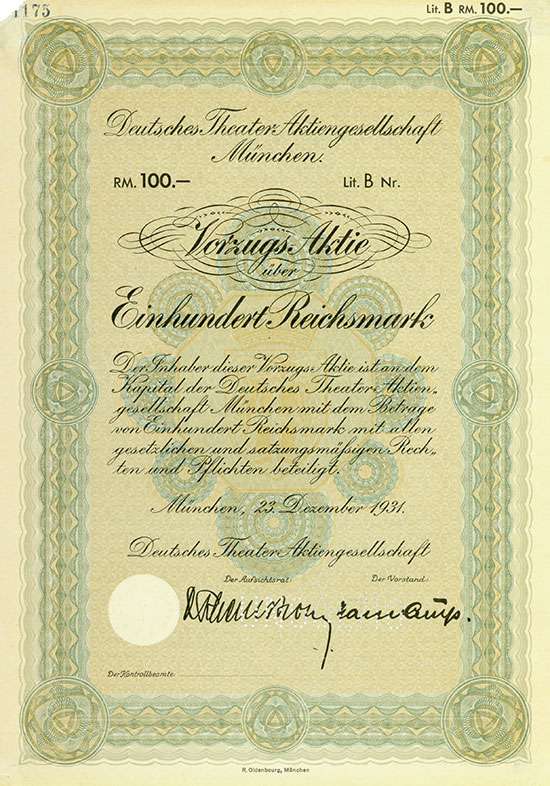 1175
Lit. B RM. 100.—
Deutsches Theater-Aktiengesellschaft
München.
RM. 100.— Lit. B Nr.
Vorzugs-Aktie
über
Einhundert Reichsmark
Der Inhaber dieser Vorzugs-Aktie ist an dem
Kapital der Deutsches Theater-Aktien-
gesellschaft München mit dem Betrage
von Einhundert Reichsmark mit allen
gesetzlichen und satzungsmäßigen Rech-
ten und Pflichten beteiligt.
München, 23. Dezember 1931.
Deutsches Theater-Aktiengesellschaft
Der Aufsichtsrat: Der Vorstand:
Der Kontrollbeamte:
R. Oldenbourg, München